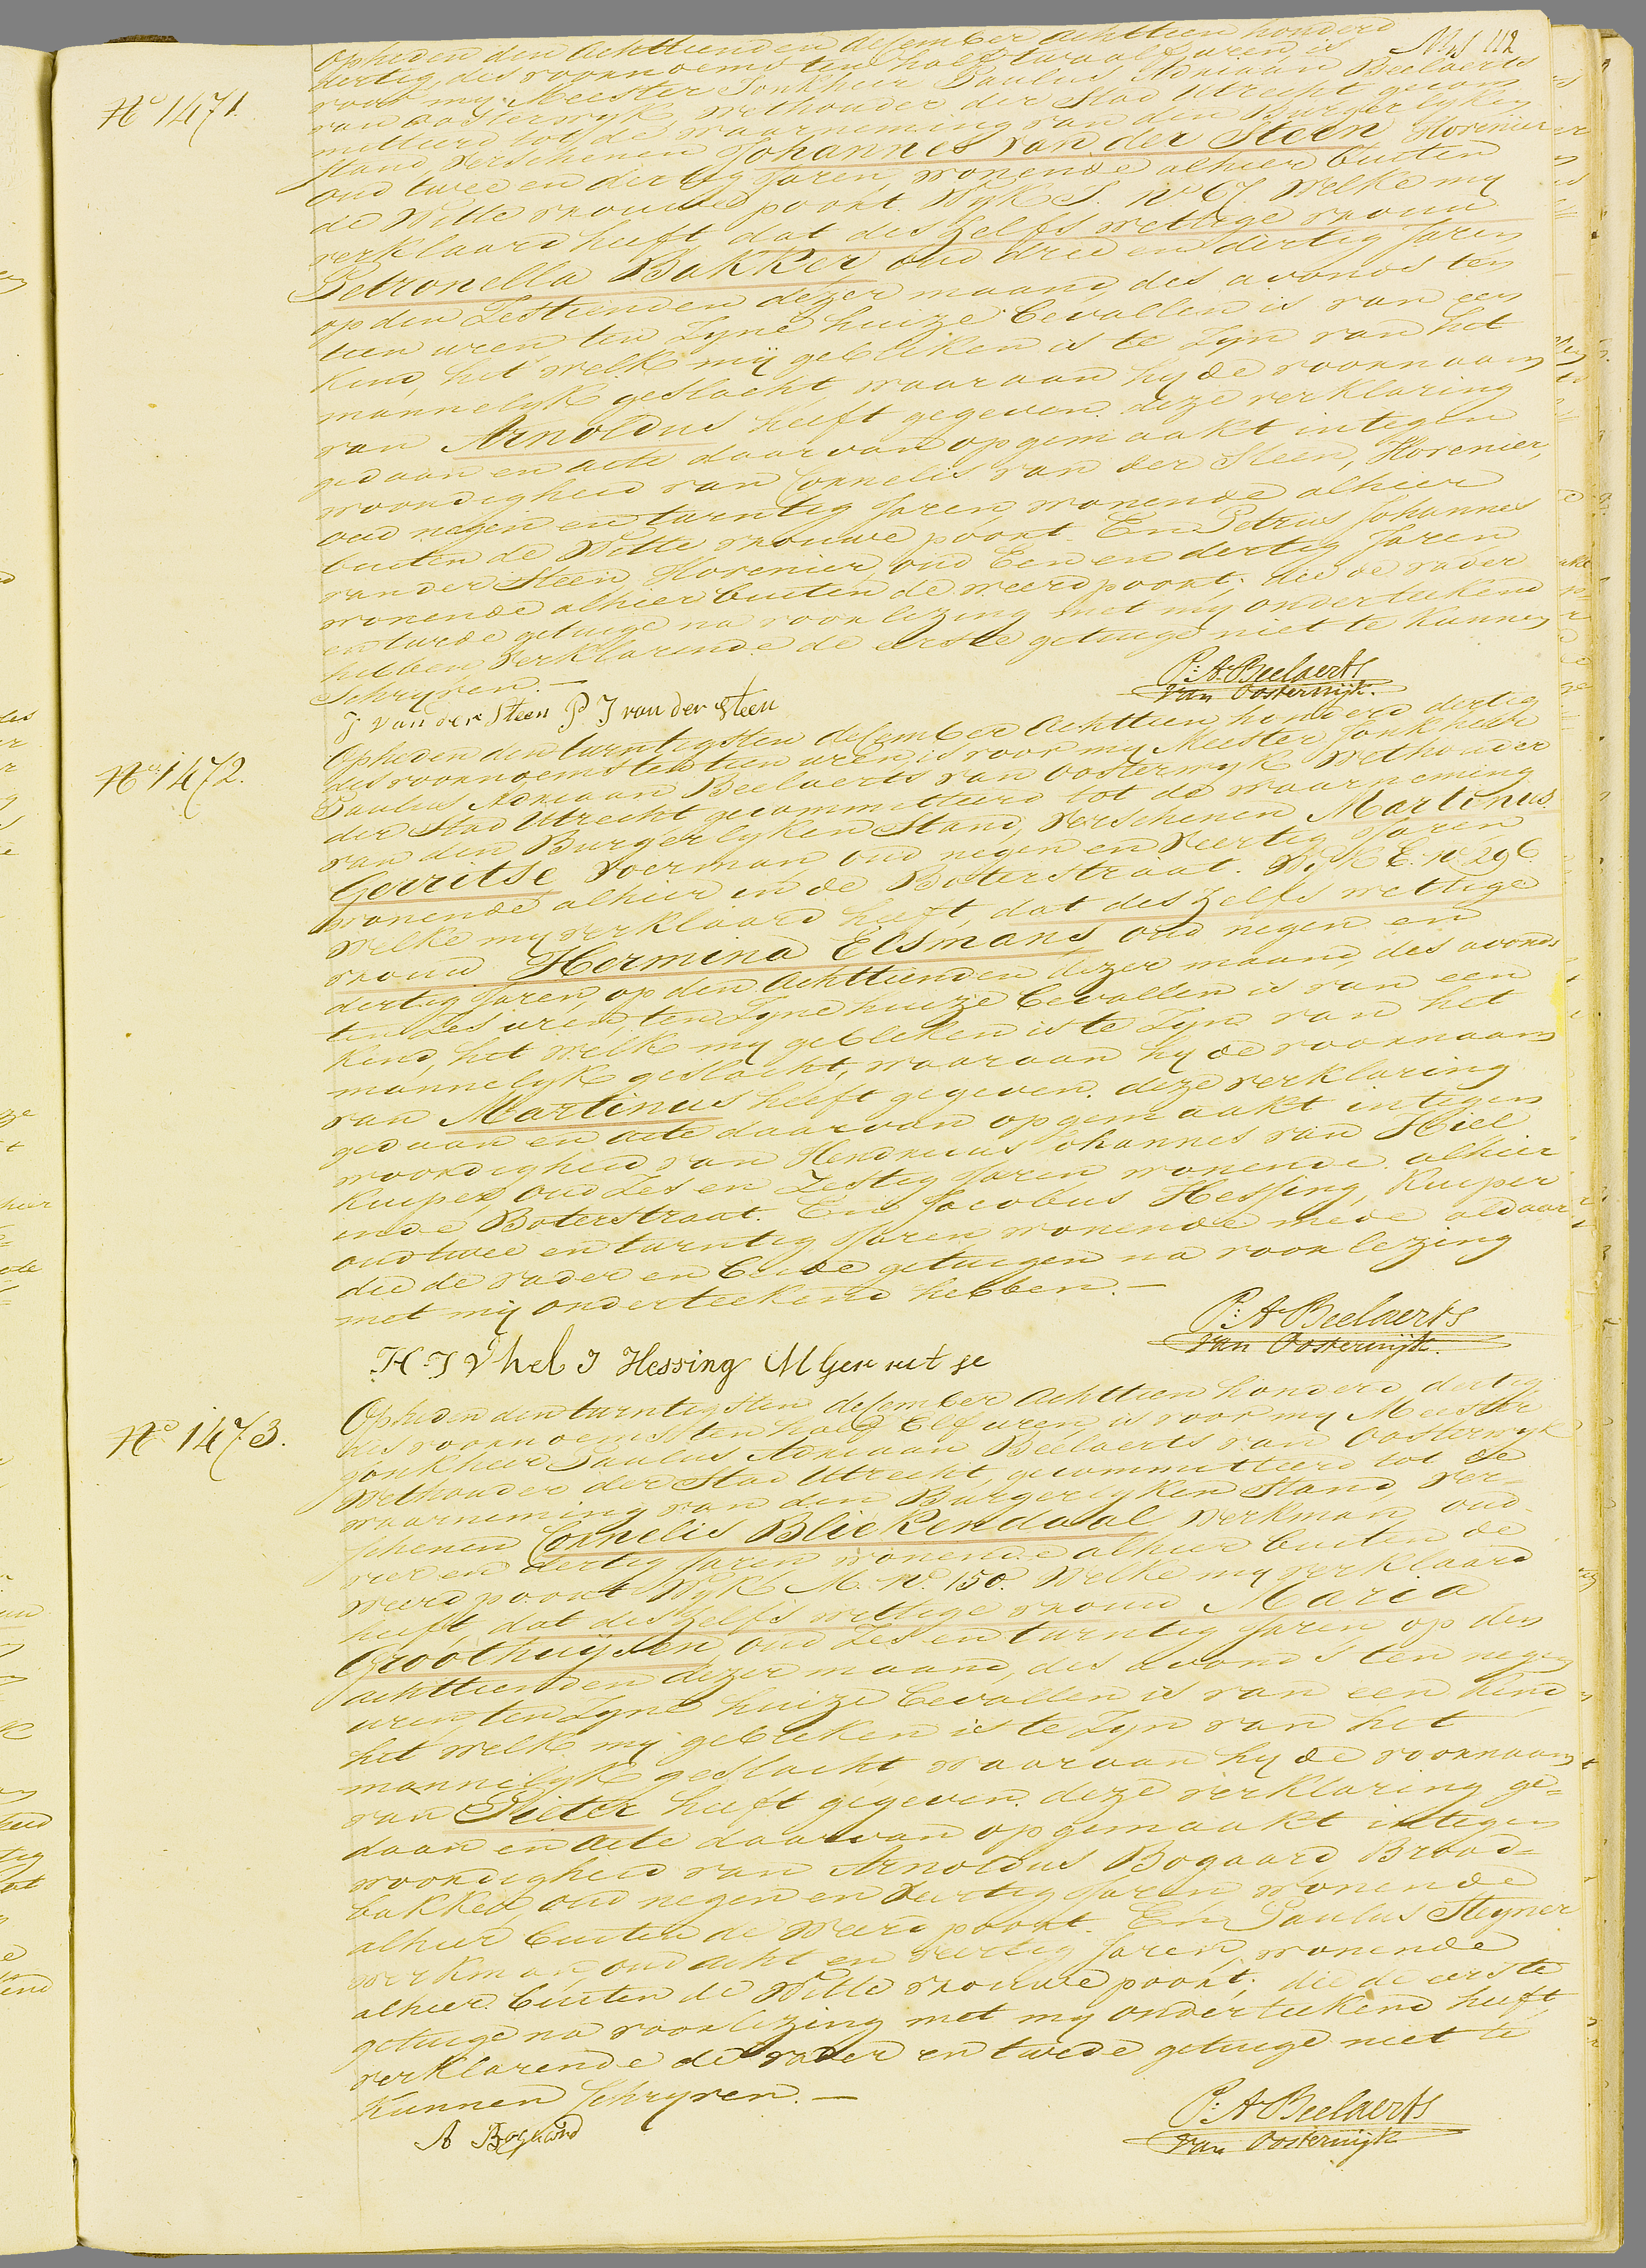 Opheden den Achttienden december Achttien honderd
M 112
dertig, des voornoems ten half twaalf uren, is
N° 1471.
voor my Meester Jonkheer Paulus Adriaan Beelaerts
van Oosterwyk, Wethouder der Stad Utrecht gecom
mitteerd tot de waarneming van den Burgerlyken
Stand, Verschenen Johannes van der Steen Hovenier
oud twee en dertig Jaren, wonende alhier buiten
de Witte vrouwe poort. Wyk I. N° 67. Welke my
verklaard heeft, dat des zelfs wettige vrouw
Petronella Bakker, oud drie en dertig Jaren
op den Zestienden dezer maand, des avonds ten
tien uren, ten Zyne huize bevallen is van een
Kind, het welk mij gebleken is te Zyn van het
mannelyk geslacht, waaraan hy de voornaam
van Arnoldus heeft gegeven. deze verklaring
gedaan en acte daarvan opgemaakt in tegen
woordigheid van Cornelis van der Steen, Hovenier,
oud negen en twintig Jaren, wonende alhier
buiten de Witte vrouwe poort. En Petrus Johannes
van der Steen, Hovenier, oud Een en dertig Jaren
wonende alhier buiten de weerd poort; die de vader
en twede getuige na voorlezing met my onderteekend
hebben Verklarende de eerste getuige niet te kunnen
Schryven.—
P: A. Beelaerts
van Oosterwijk.
J van der Steen P J van der Steen
Opheden den twintigsten december Achttien honderd dertig
N° 1472.
des voornoems ten tien uren, is voor my Meester Jonkheer
Paulus Adriaan Beelaerts van Oosterwyk Wethouder
der Stad Utrecht gecommitteerd tot de waarneming
van den Burgerlyken Stand, Verschenen Martinus
Gerritse Voerman, oud negen en Veertig Jaren
wonende alhier in de Boterstraat. Wyk E. N° 296.
Welke my verklaard heeft, dat des zelfs wettige
vrouw Hermina Elsmans, oud negen en
dertig Jaren, op den Achttienden dezer maand, des avonds
ten Zes uren, ten Zyne huize bevallen is van een
Kind, het welk my gebleken is te Zyn van het
mannelyk geslacht, waaraan hy de voornaam
van Martinus heeft gegeven. deze verklaring
gedaan en acte daarvan opgemaakt in tegen
woordigheid van Hendricus Johannes van Hiel
Kuiper, oud Zes en Zestig Jaren wonende alhier
in de Boterstraat. En Jacobus Hessing, Kuiper
oud twee en twintig Jaren wonende mede aldaar
die de vader en beide getuigen na voorlezing
met mij onderteekend hebben.—
P: A Beelaerts
van Oosterwijk.
H J V hel J Hessing M Gerritse
Opheden den twintigsten december Achttien honderd dertig
N° 1473.
des voornoems ten half Elf uren, is voor my Meester
Jonkheer Paulus Adriaan Beelaerts van Oosterwyk
Wethouder der Stad Utrecht, gecommitteerd tot de
waarneming van den Burgerlyken Stand, Ver-
schenen Cornelis Bliekendaal Werkman, oud
vier en dertig Jaren wonende alhier buiten de
weerd poort Wyk M. N° 150. Welke my verklaard
heeft, dat des zelfs wettige vrouw Maria
Groothuijsen, oud Zes en twintig Jaren op den
achttienden dezer maand, des avonds ten negen
uren, ten Zyne huize bevallen is van een Kind
het welk mij gebleken is te Zyn van het
mannelyk geslacht waaraan hy de voornaam
van Pieter heeft gegeven. deze verklaring ge=
daan en acte daarvan opgemaakt in tegen
woordigheid van Arnoldus Bogaard, Brood=
bakker, oud negen en Veertig Jaren wonende
alhier buiten de Weerd poort. En Paulus Steyner
werkman, oud acht en veertig Jaren, wonende
alhier buiten de Witte vrouwe poort; die de eerste
getuige na voorlezing met my onderteekend heeft,
verklarende de vader en twede getuige niet te
kunnen Schryven.—
P: A Beelaerts
van Oosterwijk
A Bogaard